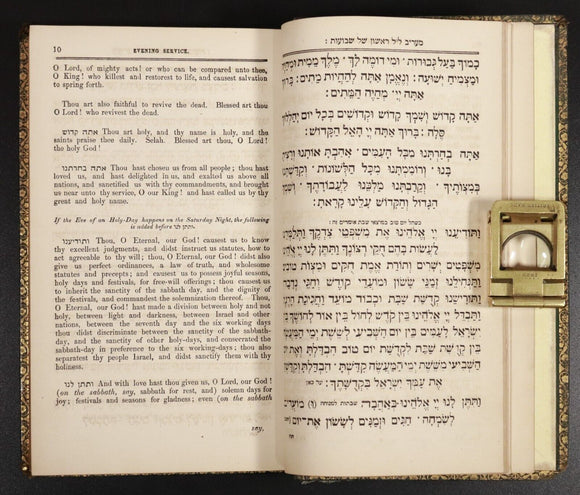 10
EVENING SERVICE.
O Lord, of mighty acts! or who can be compared unto thee,
O King! who killest and restorest to life, and causest salvation
to spring forth.
Thou art also faithful to revive the dead. Blessed art thou
O Lord! who revivest the dead.
אתה קדוש Thou art holy, and thy name is holy, and the
saints praise thee daily. Selah. Blessed art thou, O Lord!
the holy God!
אתה בחרתנו Thou hast chosen us from all people; thou hast
loved us, and hast delighted in us, and exalted us above all
nations, and sanctified us with thy commandments, and brought
us near unto thy service, O our King! and hast called us by thy
great and holy name.
If the Eve of an Holy-Day happens on the Saturday Night, the following
is added before ותתן לנו.
ותודיענו Thou, O Eternal, our God! causest us to know
thy excellent judgments, and didst instruct us statutes, how to
act agreeable to thy will; thou, O Eternal, our God! didst also
give us perfect ordinances, a law of truth, and wholesome
statutes and precepts; and causest us to possess joyful seasons,
holy days and festivals, for free-will offerings; thou causest us
to inherit the sanctity of the sabbath day, and the dignity of
the festivals, and commandest the solemnization thereof. Thou,
O Eternal, our God! hast made a division between holy and not
holy, between light and darkness, between Israel and other
nations, between the seventh day and the six working days
thou didst discriminate between the sanctity of the sabbath-
day, and the sanctity of other holy-days, and consecrated the
sabbath-day in preference to the six working-days; thou also
separatest thy people Israel, and didst sanctify them with thy
holiness.
ותתן לנו And with love hast thou given us, O Lord, our God!
(on the sabbath, say, sabbath for rest, and) solemn days for
joy; festivals and seasons for gladness; even (on the sabbath
say,
מעריב ליל ראשון של שבועות :
כמוך בעל גבורות ומי דומה לך מלך ממית ומחיה
ומצמיח ישועה: ונאמן אתה להחיות מתים: ברוך
אתה יי מחיה המתים:
אתה קדוש ושמך קדוש וקדושים בכל יום יהללוך
סלה: ברוך אתה יי האל הקדוש:
אתה בחרתנו מכל העמים אהבת אותנו ורצית
בנו ורוממתנו מכל הלשונות וקדשתנו
במצותיך וקרבתנו מלכנו לעבודתך ושמך
הגדול והקדוש עלינו קראת:
כשחל יום טוב במוצאי שבת אומרים זה:
ותודיענו יי אלהינו את משפטי צדקך ותלמדנו
לעשות בהם חקי רצונך ותתן לנו יי אלהינו
משפטים ישרים ותורות אמת חקים ומצות טובים
ותנחילנו זמני ששון ומועדי קודש וחגי נדבה
ותורישנו קדושת שבת וכבוד מועד וחגיגת הרגל
ותבדל יי אלהינו בין קודש לחול בין אור לחושך בין
ישראל לעמים בין יום השביעי לששת ימי המעשה
בין קדושת שבת לקדושת יום טוב הבדלת ואת יום
השביעי מששת ימי המעשה קדשת הבדלת וקדשת
את עמך ישראל בקדושתך: עד כאן
ותתן לנו יי אלהינו באהבה שבתות למנוחה (ו) מועדים
לשמחה חגים וזמנים לששון את יום